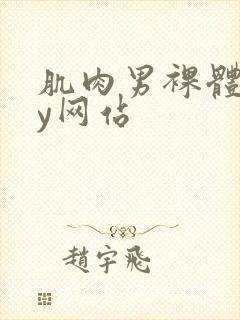 肌肉男裸體
y网站
趙宇飛